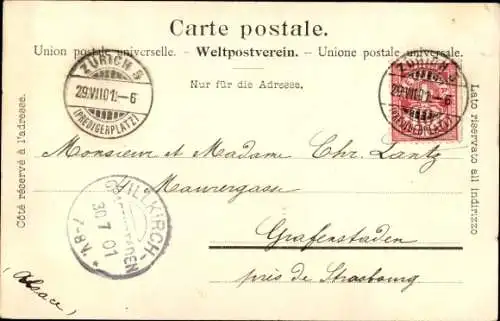 Carte postale.
Union postale universelle. - Weltpostverein. - Unione postale universale.
Nur für die Adresse.
Côté réservé à l'adresse.
Lato riservato all indirizzo
ZÜRICH 5
29.VII.01.-6
(PREDIGERPLATZ)
ZÜRICH 5
29.VII.01.-6
(PREDIGERPLATZ)
Monsieur et Madame Chr. Lantz
Maurergasse
Grafenstaden
près de Strasbourg
(Alsace)
ILLKIRCH-
30.7.01
7-8N.